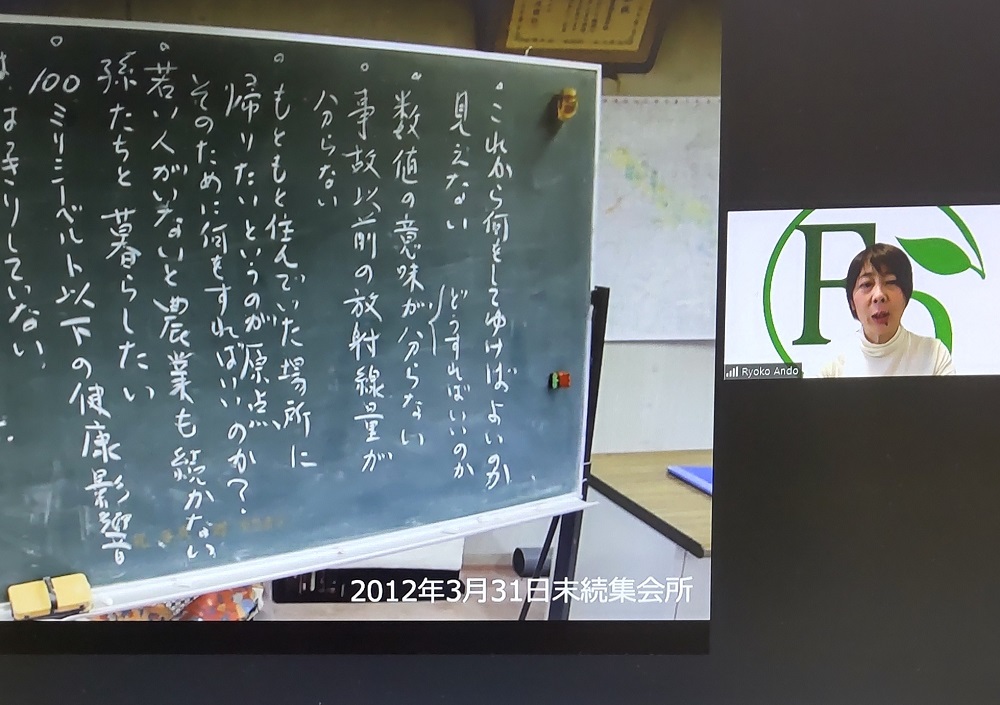 。これから何をしてゆけばよいのか
見えない どうすればいいのか
。数値の意味が分らない
。事故以前の放射線量が
分らない
。もともと住んでいた場所に
帰りたいというのが原点
そのために何をすればいいのか?
。若い人がいないと農業も続かない
孫たちと暮らしたい
。100ミリシーベルト以下の健康影響
はっきりしていない。
2012年3月31日末続集会所
Ryoko Ando